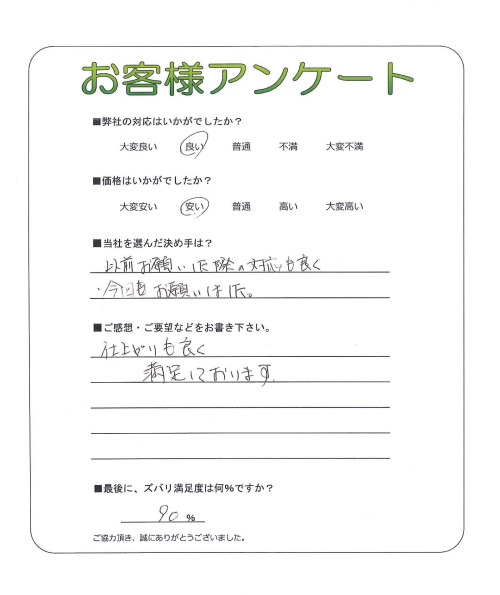 お客様アンケート
■弊社の対応はいかがでしたか？
大変良い 良い 普通 不満 大変不満
■価格はいかがでしたか？
大変安い 安い 普通 高い 大変高い
■当社を選んだ決め手は？
以前お願いした際の対応も良く
・今回もお願いしました。
■ご感想・ご要望などをお書き下さい。
仕上がりも良く
満足しております。
■最後に、ズバリ満足度は何%ですか？
90 %
ご協力頂き、誠にありがとうございました。